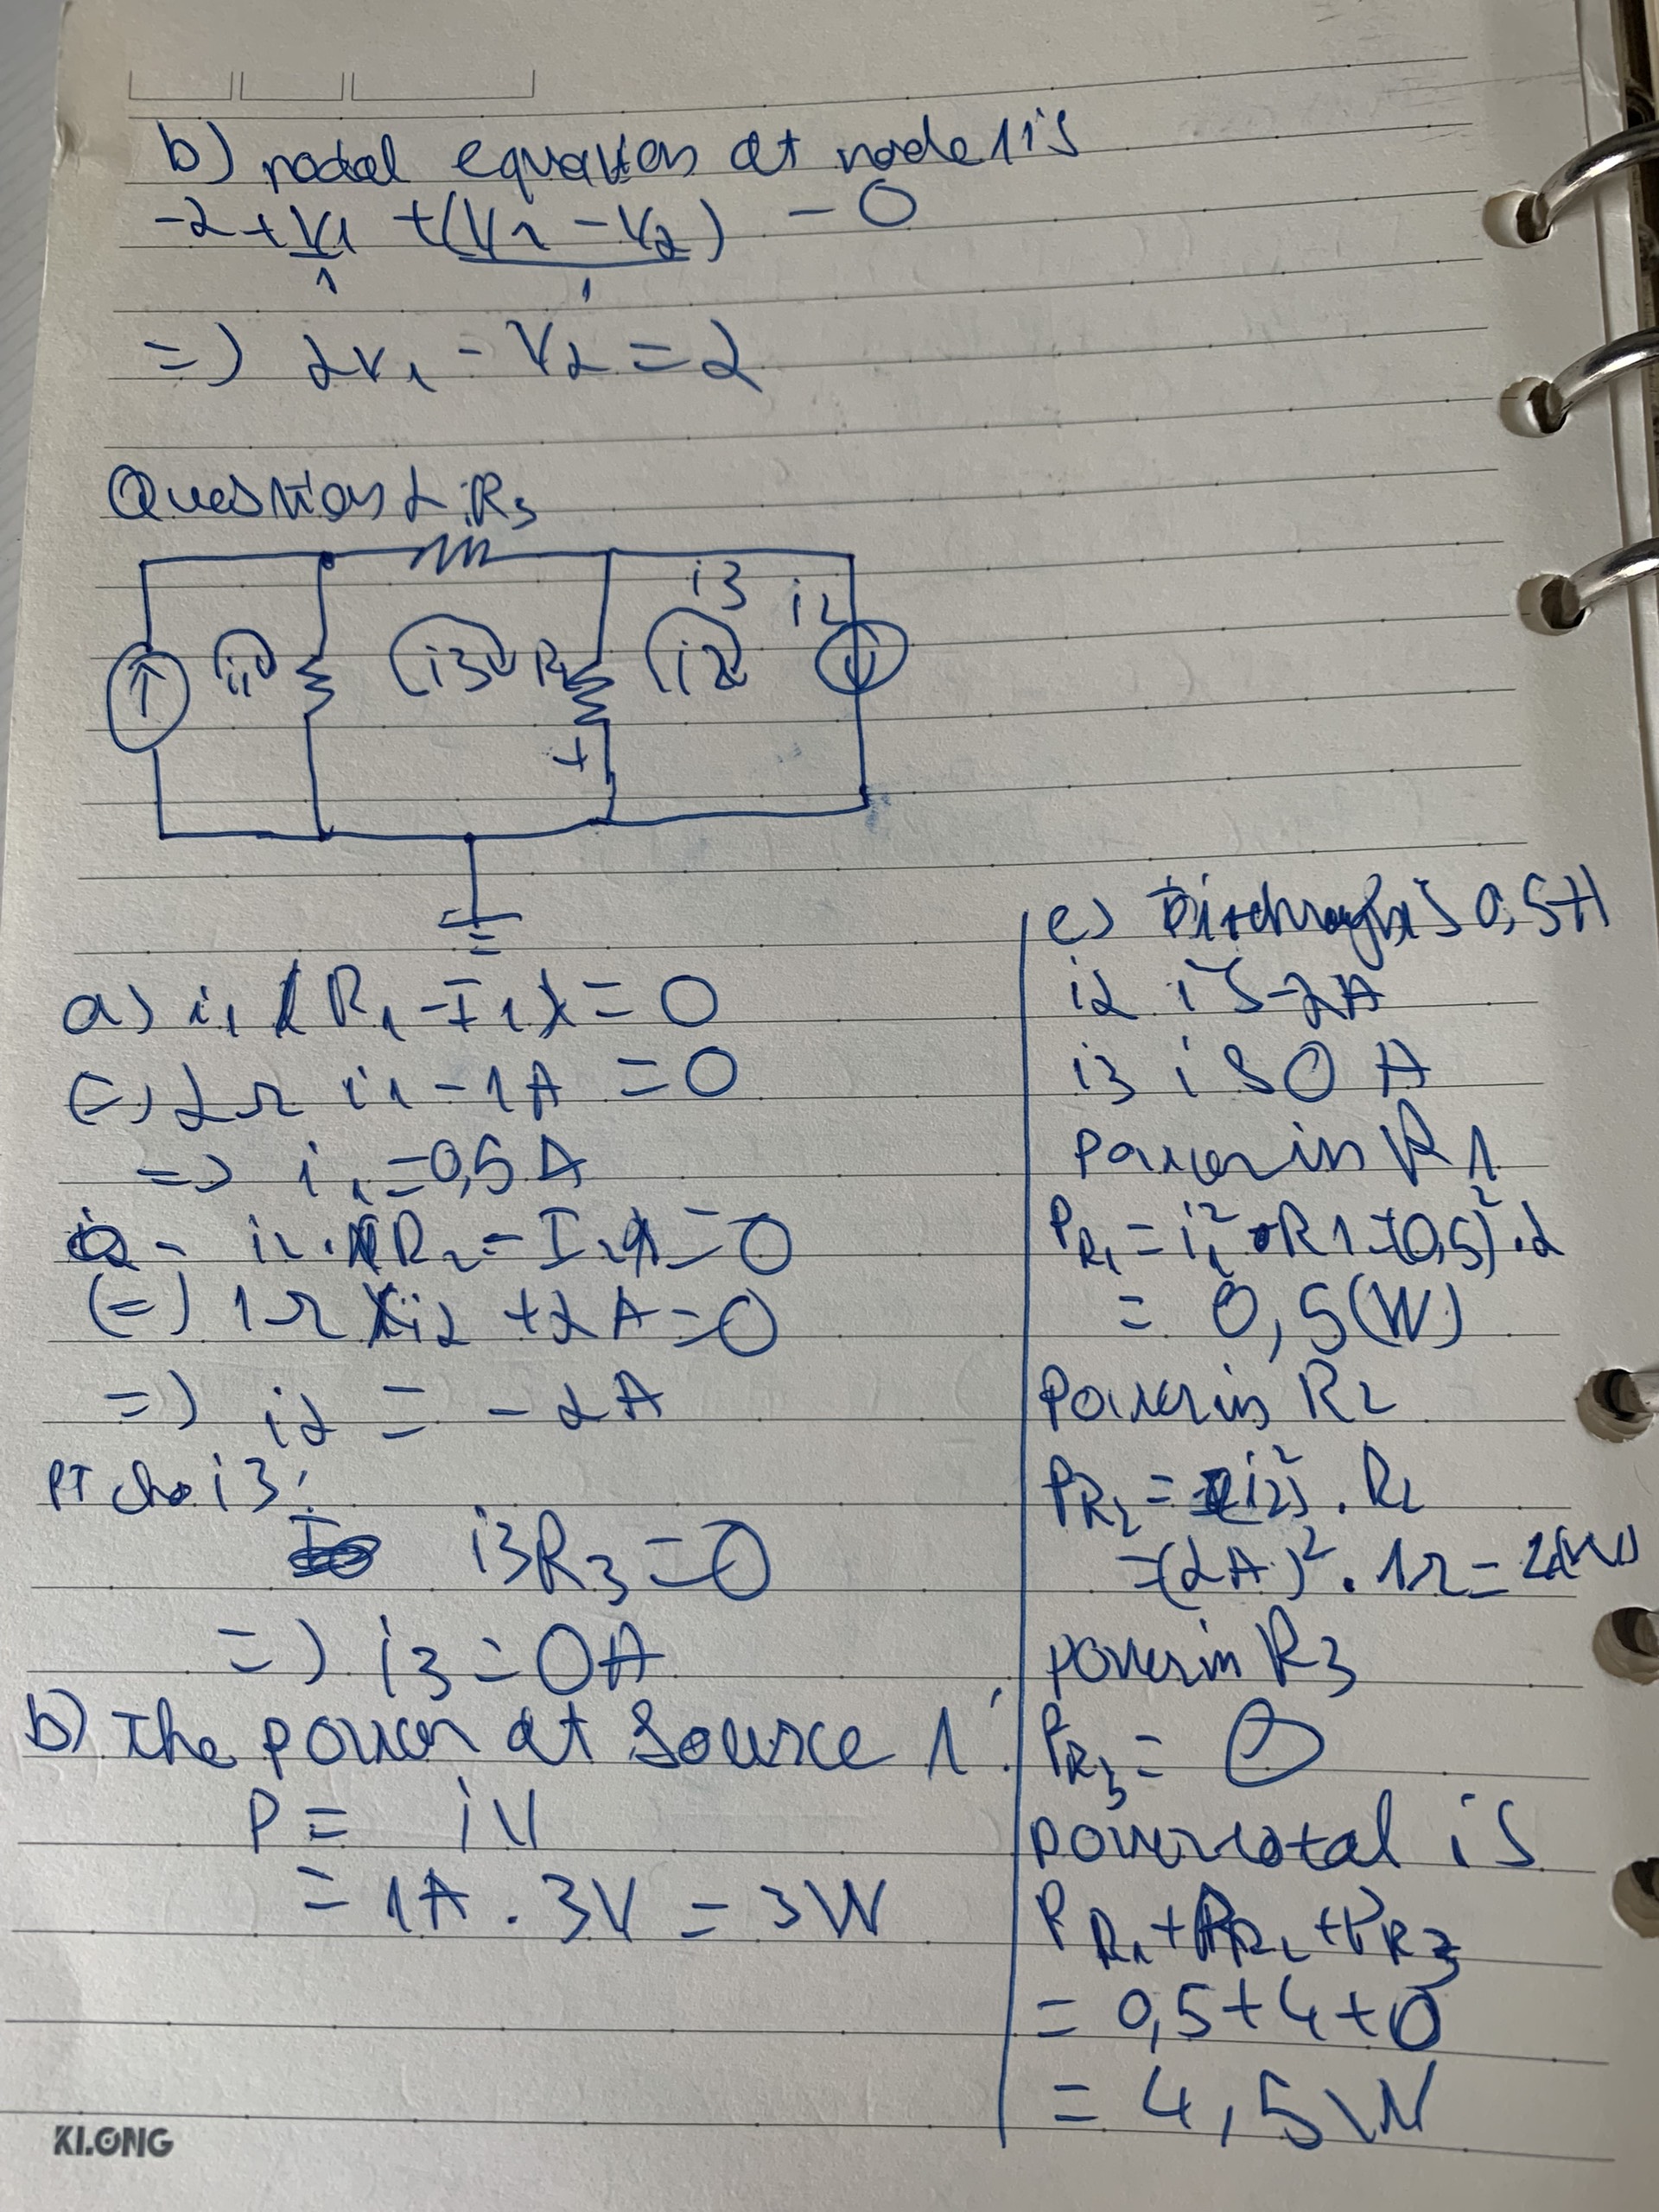 b) nodal equation at node 1 is
-2 + V1/1 + (V1 - V2)/1 - 0
=) 2V1 - V2 = 2
Question 2 : R3
i3 i2
i1 i3 R2 i2
+
a) i1 ( R1 - I1 ) = 0
(=) 2Ω i1 - 1A = 0
=> i1 = 0,5A
i2 . ( R2 - I2 ) = 0
(=) 1Ω i2 + 2A = 0
=) i2 = - 2A
PT cho i3 :
i3R3 = 0
=) i3 = 0A
b) The power at Source 1 :
P = iV
= 1A . 3V = 3W
i2 is -2A
i3 is 0 A
Power in R1
PR1 = i1² . R1 = (0,5)² . 2
= 0,5(W)
Power in R2
PR2 = (i2)² . R2
= (2A)² . 1Ω =
power in R3
PR3 = 0
power total is
PR1 + PR2 + PR3
= 0,5 + 4 + 0
= 4,5W
KLONG